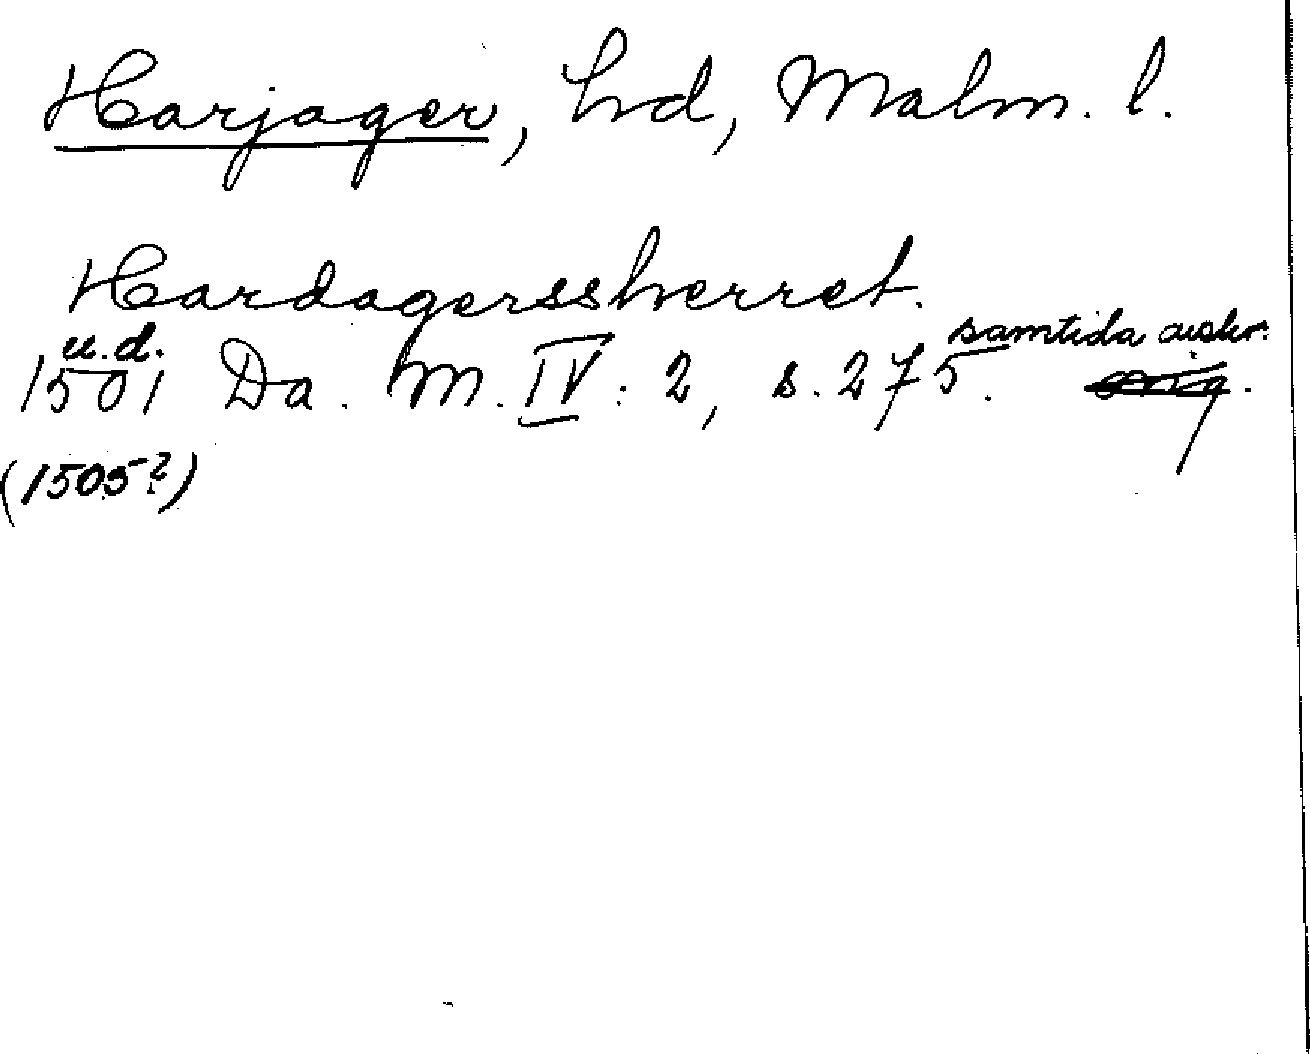 Harjager, hd, Malm. l.
Hardagerssherret.
u.d. samtida avskr.
1501 Da. M. IV: 2, s. 275. orig.
(1505?)